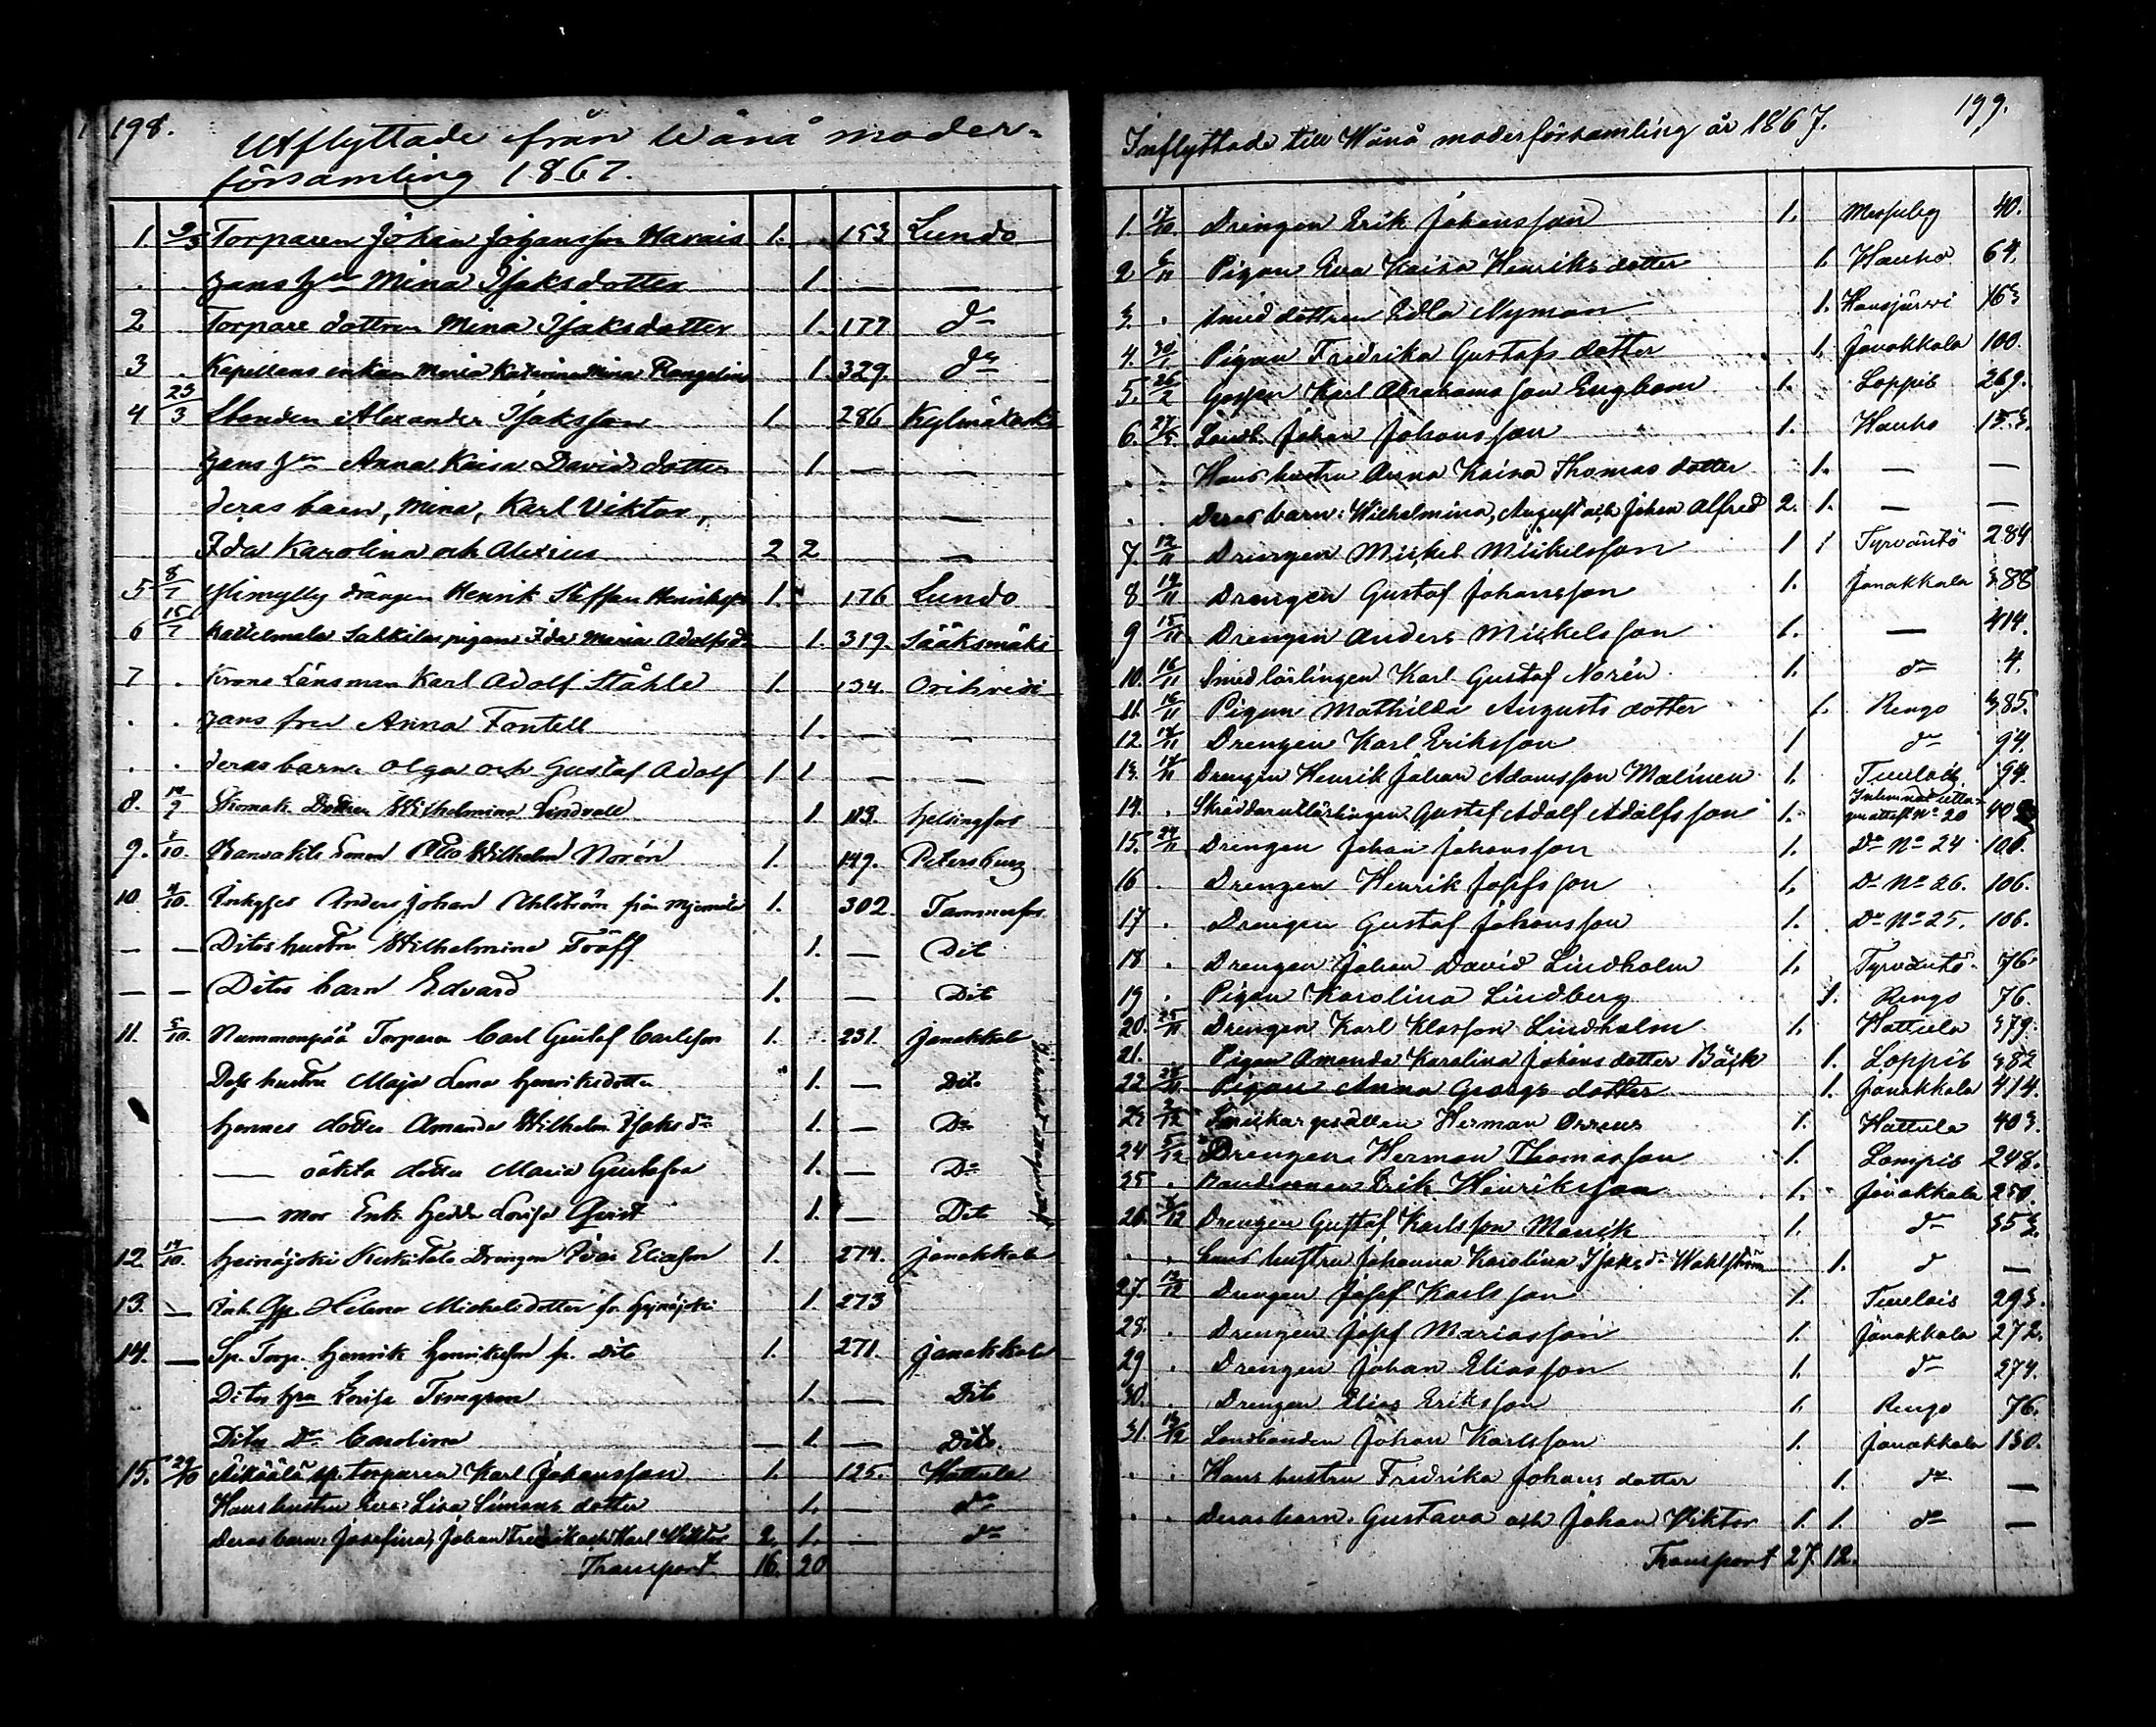 198.
Utflyttade från Wånå moder-
församling 1867.
1. 9/3 Torparen Johan Johansson Harvais 1. 153 Lundo
hans hu Mina Isaksdotter 1. — —
2 . Torpare dottren Mina Isaksdotter 1. 177 do
3 . Kapellans enkan Maria Katarina Mina 1. 329. do
4 23/3 Alexander Isaksson 1. 286 Kylmäkoski
hans hu Anna Kaisa Davids dotter 1. — —
deras barn, Mina, Karl Viktor, —
Ida Karolina och Alexius 2 2 —
5 8/7 drängen Henrik Steffan 1. 176 Lundo
6 15/7 pigan Ida Maria Adolfsdr 1. 319. Sääksmäki
7 . Krono Länsman Karl Adolf Ståhle 1. 134. Orihvesi
. . hans fru Anna Fontell 1. — —
. . deras barn. Olga och Gustaf Adolf 1 1 — —
8. Dottren Wilhelmina Lindvall 1. 113 Helsingfors
9. Otto Wilhelm Norén 1. 149. Petersburg
10. 4/10. Anders Johan Ahlström från 1. 302. Tammerfors
— — Ditos hustru Wilhelmina Träff 1. — Dit
— — Ditos barn Edvard 1. — Dit
11. 5/10. Nummenpää Torparen Carl Gustaf Carlsson 1. 231. Janakkala
Dess hustru Maja Lena Henriksdotter 1. — Dito
Hennes dotter Amanda Wilhelm. Isaksdr 1. — Do
— oäkta dotter Maria Gustafva 1. — Do
— mor Enk. Hedda Lovisa Qvist 1. — Dit
12. 14/10. Heinäjoki Drengen Eliasson 1. 274. Janakkala
13. — Helena Michelsdotter fr. Heinäjoki 1. 273
14. — Sp. Torp. Henrik Henriksson fr. Dito 1. 271. Janakkala
Ditos hru Lovisa 1. — Dito
Ditos Dr Carolina — 1. — Dito.
15. 29/10 sp. torparen Karl Johansson 1. 125. Hattula
Hans hustru Eva Lisa Simons dotter 1. — do
Deras barn: Josefina, Johan Fredrik och Karl Viktor 2. 1. — do
Transport 16. 20
199.
Inflyttade till Wånå moderförsamling år 1867.
1. 17/10 Drengen Erik Johansson 1. Messuby 40.
2 6/11 Pigan Eva Kaisa Henriks dotter 1. Hauho 64.
3. . Smed dottren Edla Nyman 1. Hausjärvi 163
4. 30/1 Pigan Fredrika Gustafs dotter 1. Janakkala 100.
5. 26/2 Gossen Karl Abrahamsson Engbom 1. Loppis 269.
6. Landb. Johan Johansson 1. Hauho 153.
. . Hans hustru Anna Kaisa Thomas dotter 1. — —
. . Deras barn: Wilhelmina, August och Johan Alfred 2. 1. — —
7. 12/11 Drengen Mickel Mickelsson 1 Tyrväntö 284
8 14/11 Drengen Gustaf Johansson 1. Janakkala 388
9 15/11 Drengen Anders Mickelsson 1. — 414.
10. 16/11 Smedlärlingen Karl Gustaf Norén 1. do 4.
11. 16/11 Pigan Mathilda Augusts dotter 1. Rengo 385.
12. 17/11 Drengen Karl Eriksson 1 do 94.
13. 17/11 Drengen Henrik Johan Adamsson Malinen 1. Tuulois 94.
14. . Skräddarelärlingen Gustaf Adolf Adolfsson 1. Inlemnat utta-
gne attest No 20 40
15. 24/11 Drengen Johan Johansson 1. Do No 24 106.
16 . Drengen Henrik Josefsson 1. Do No 26. 106.
17 . Drengen Gustaf Johansson 1. Do No 25. 106.
18 . Drengen Johan David Lindholm 1. Tyrväntö 76.
19 . Pigan Karolina Lindberg 1. Rengo 76.
20. 25/11 Drengen Karl Klasson Lindholm 1. Hattula 379.
21. Pigan Amanda Karolina Johans dotter Bäck 1. Loppis 382
22 Pigan Anna Georgs dotter 1. Janakkala 414.
23 2/12 Snickargesällen Herman Orrenus 1. Hattula 403.
24 5/12 Drengen Herman Thomasson 1. Lampis 248.
25 . Bondsonen Erik Henriksson 1. Janakkala 250.
26. Drengen Gustaf Karlsson Manik 1. do 353.
. . hans hustru Johanna Karolina Isaksdr Wahlström 1. d —
27. 12/12 Drengen Josef Karlsson 1. Tuulois 293.
28. . Drengen Josef Mariasson 1. Janakkala 272.
29 . Drengen Johan Eliasson 1. do 274.
30. . Drengen Elias Eriksson 1. Rengo 76.
31. 13/12 Landbonden Johan Karlsson 1. Janakkala 130.
. . Hans hustru Fredrika Johans dotter 1. do —
. . Deras barn. Gustava och Johan Viktor 1. 1. do —
Transport 27. 12.